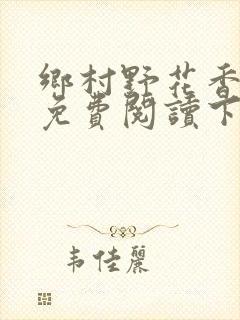 鄉村野花香
免費閱讀下
韦佳麗